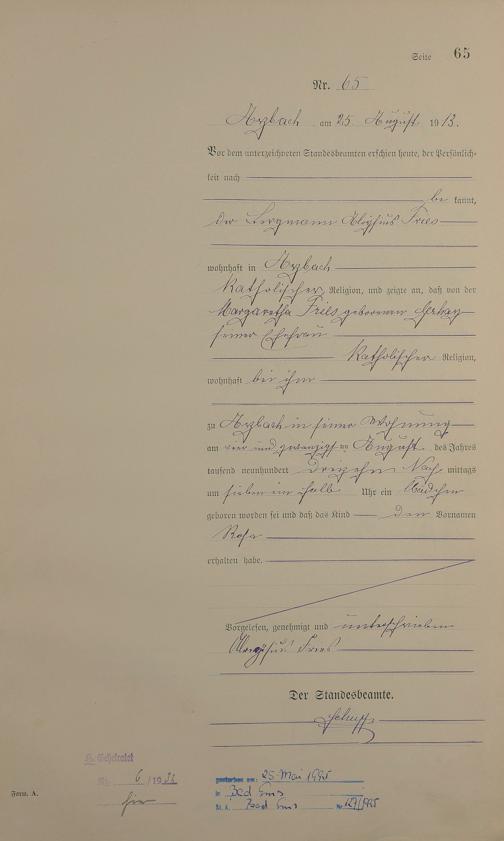 Seite 65
Nr. 65
Arzbach am 25 August 1913.
Vor dem unterzeichneten Standesbeamten erschien heute, der Persönlich-
keit nach
be kannt,
der Bergmann Aloysius Fries
wohnhaft in Arzbach
katholischer Religion, und zeigte an, daß von der
Margaretha Fries geborenen
seiner Ehefrau
katholischer Religion,
wohnhaft bei ihm
zu Arzbach in seiner Wohnung
am vier und zwanzigsten August des Jahres
tausend neunhundert dreizehn Nach mittags
um sieben ein halb Uhr ein Mädchen
geboren worden sei und daß das Kind den Vornamen
Rosa
erhalten habe.
Vorgelesen, genehmigt und unterschrieben
Aloysius Fries
Der Standesbeamte.
Schupp
H. Geheiratet
Nr. 6 / 19
hier
gestorben am: 25 Mai 1995
in Bad Ems
St. A. Bad Ems Nr. 127/1995
Form. A.